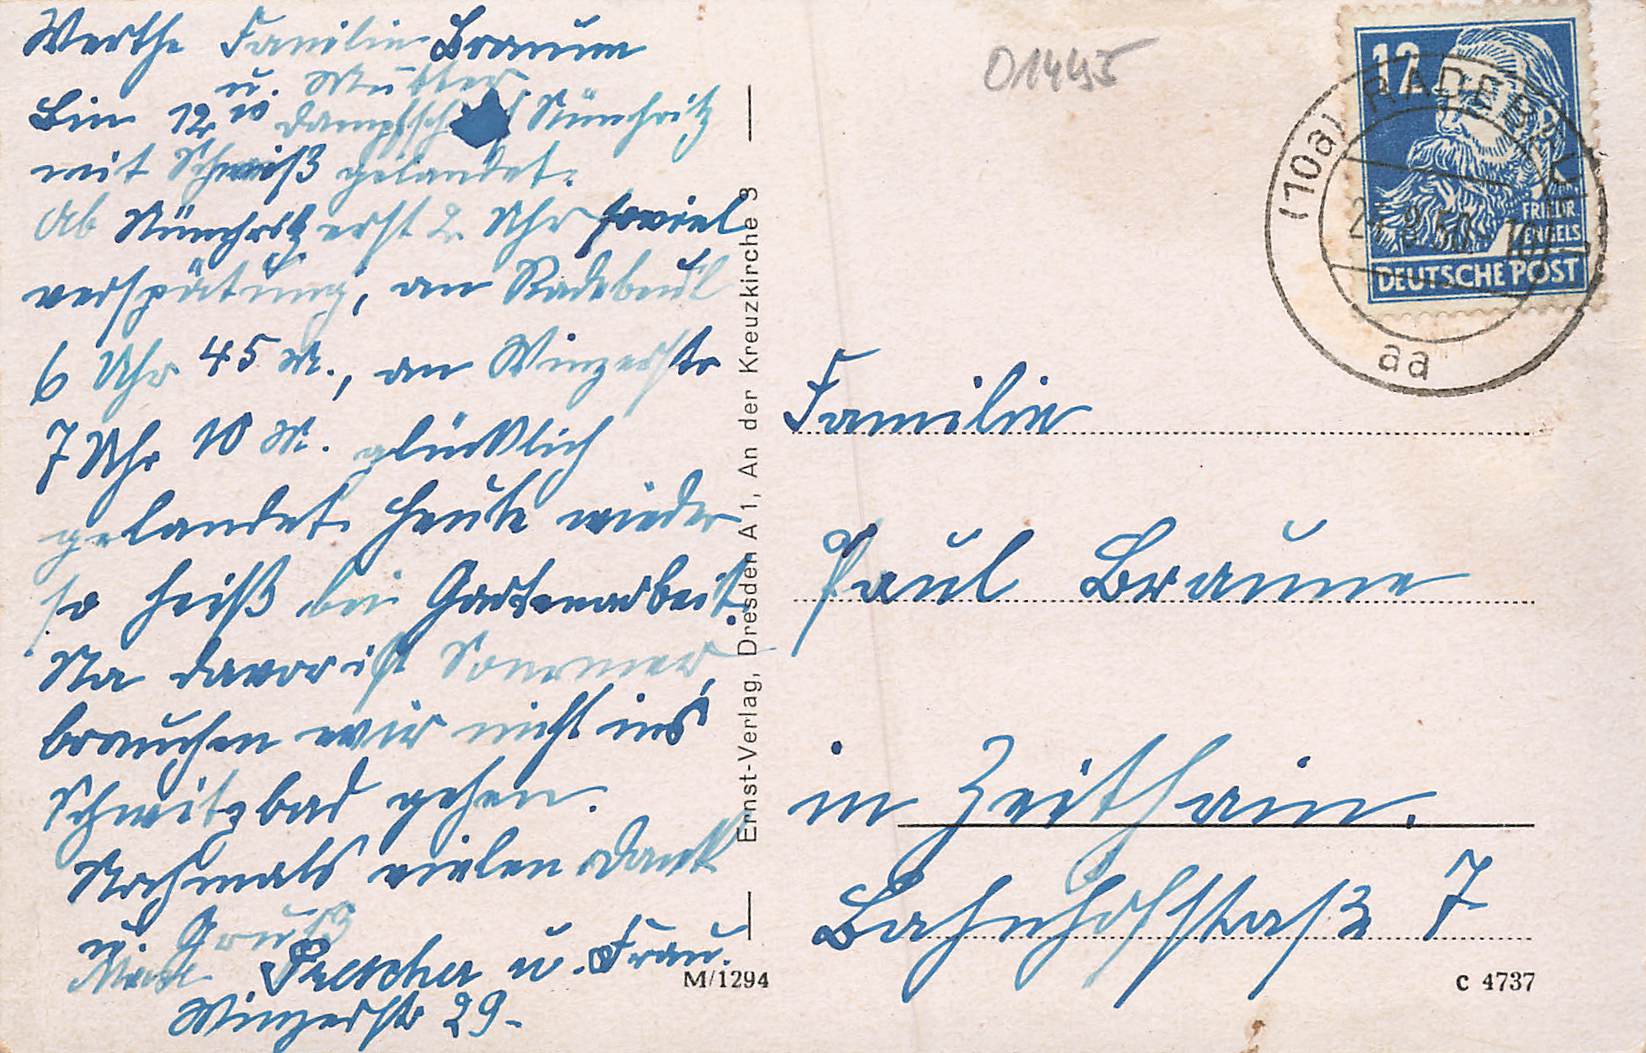 Werthe Familie Braune
u. Mutter
Bin 12 10 Dampfsch Nünchritz
mit Schweiß gelandet.
Ab Nünchritz erst 2 Uhr soviel
verspätung, an Radebeul
6 Uhr 45 M., an Winzerstr
7 Uhr 10 M. glücklich
gelandet. Heute wieder
so heiß bei Gartenarbeit.
Na davor ist Sommer,
brauchen wir nicht ins
Schwitzbad gehen.
Nochmals vielen Dank
u. Gruß
Max u. Frau.
Winzerstr 29.
Ernst-Verlag, Dresden A 1, An der Kreuzkirche 3
M/1294
01445
12
FRIEDR
ENGELS
DEUTSCHE POST
(10a) RADEBEUL
aa
Familie
Paul Braune
in Zeithain.
Bahnhofstraße 7
C 4737